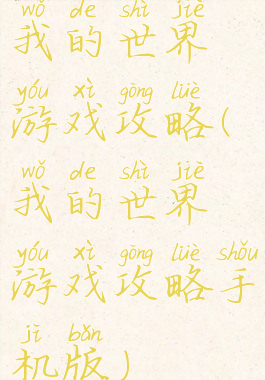 wǒ de shì jiè
我的世界
yóu xì gōng lüè
游戏攻略(
wǒ de shì jiè
我的世界
yóu xì gōng lüè shǒu
游戏攻略手
jī bǎn
机版)